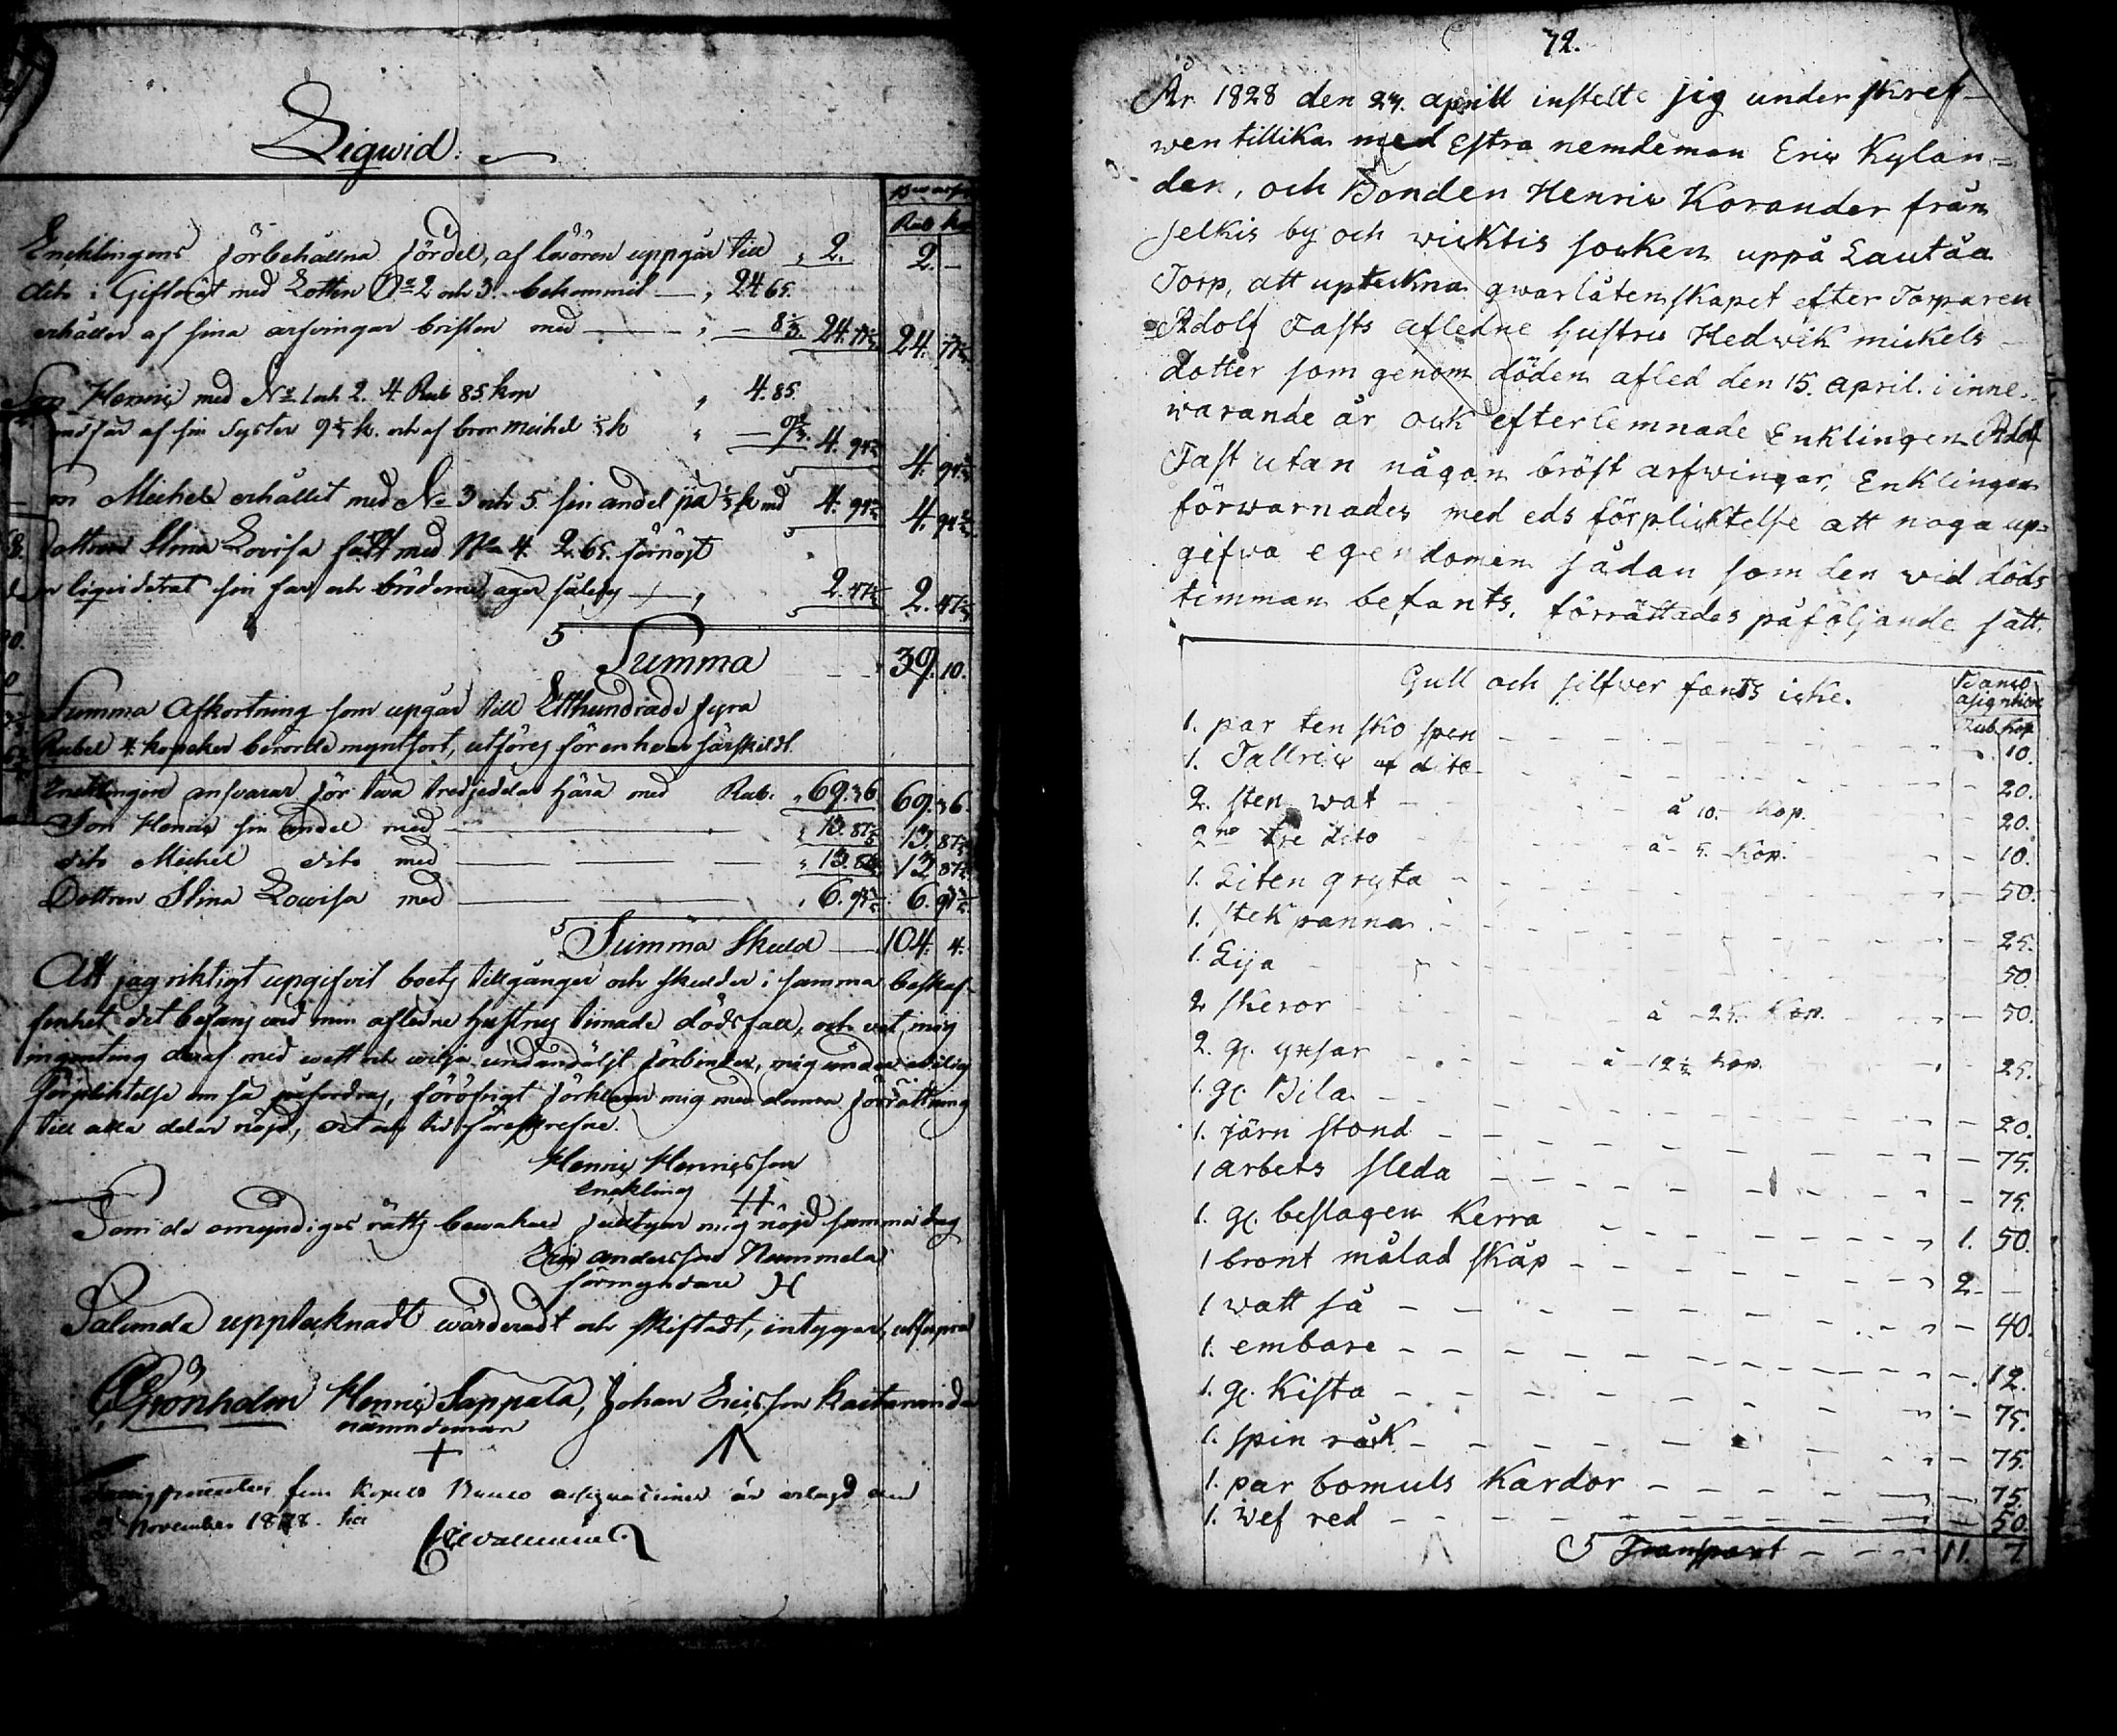 Liqwid.
Banco assign
Rub ko
Encklingens förbehållna fördel, af lösören uppgår till 2. 2. —
dito i Giftorät med Lotten No 2 och 3. bekommit — 24 65.
erhåller af sina arfvingar bristen med — 24. 24.
Son Henric med No 1 och 2. 4 Rub 85 kop 4. 85.
af sin Syster 9 k. och af bror Michel k 4. 4.
Michel erhållit med No 3 och 5. sin andel på k med 4. 4.
Dottren Stina Lovisa fått med No 4. 2. 65. förnögt
liqviderat sin far och bröderne, äger således 2. 2.
Summa 39. 10.
Summa Afkortning som upgår till Etthundrade fyra
Rubel 4. kopeker berörde myntsort, utföres för en hvar särskildt.
Encklingen ansvarar för twa tredjedelar hära med Rub. 69. 36 69. 36.
Son Henric sin andel med — 13. 87 13. 87
dito Michel dito med — 13. 13. 87
Dottren Stina Lowisa med — 6. 6.
Summa Skuld — 104. 4.
Att jag riktigt upgifvit boets tillgångar och skulder i samma beskaf-
fenhet det befans wid min aflidne hustrus timade dödsfall, och mig
ingenting deraf med wett och wilja undandöljt förbinder, mig under edelig
förplicktelse om så påfordras, föröfrigt förklarar mig med denna förrättning
till alla delar nöjd, föreskrefne.
Henric Henricsson
enckling
Som de omyndiges rätts bewakare mig nöjd samma dag
Eric Andersson Nummela
förmyndare
Sålunda upptecknadt wärderadt och skiftadt, intygar, utsupra
Grönholm Henric Sappala, Johan Ericsson
nämndeman
fem Kopek Banco assignationer är erlagd den
November 1828.
72.
År 1828 den 24. aprill instelte jig underskref-
wen tillika med Estra nemdeman Eric Kylan=
der, och Bonden Henric Korander från
Selkis by och wicktis socken uppå Lautåa
Torp, att upteckna qwarlåtenskapet efter Torparen
Adolf Tasts afledne hustru Hedwik mickels
dotter som genom döden afled den 15. april. i inne-
warande år ock efterlemnade Enklingen Adolf
Tast utan någon bröst arfwingar, Enklingen
förwarnades med eds förplicktelse att noga up=
gifwa egendomen sådan som den wid döds
timman befants, förrättades på följande sätt.
Gull och silfwer fants icke.
Banco
asigntion
Rub. Kop
1. par ten sko spen — 10.
1. Tallrik af dito — 20.
2. sten wat — à 10. — Kop. 20.
2. dito — à 5. Kop. — 10.
1. Liten gryta — 50.
1. Stek panna. — 25.
1. Lija — 50
2 skeror — à 25. Kop. — 50.
2. gl. yxsar — à 12½ Kop. — 25.
1. gl. Bila — 20.
1. järn stond — 75.
1 arbets sleda — 75.
1. gl. beslagen Kerra — 1. 50.
1 bront målad skåp — 2. —
1 watt så — 40.
1. embare — 12.
1. gl. Kista — 75.
1. spin råck — 75.
1. par bomuls Kardor — 75.
1. wef red — 50.
Transport — 11. 7